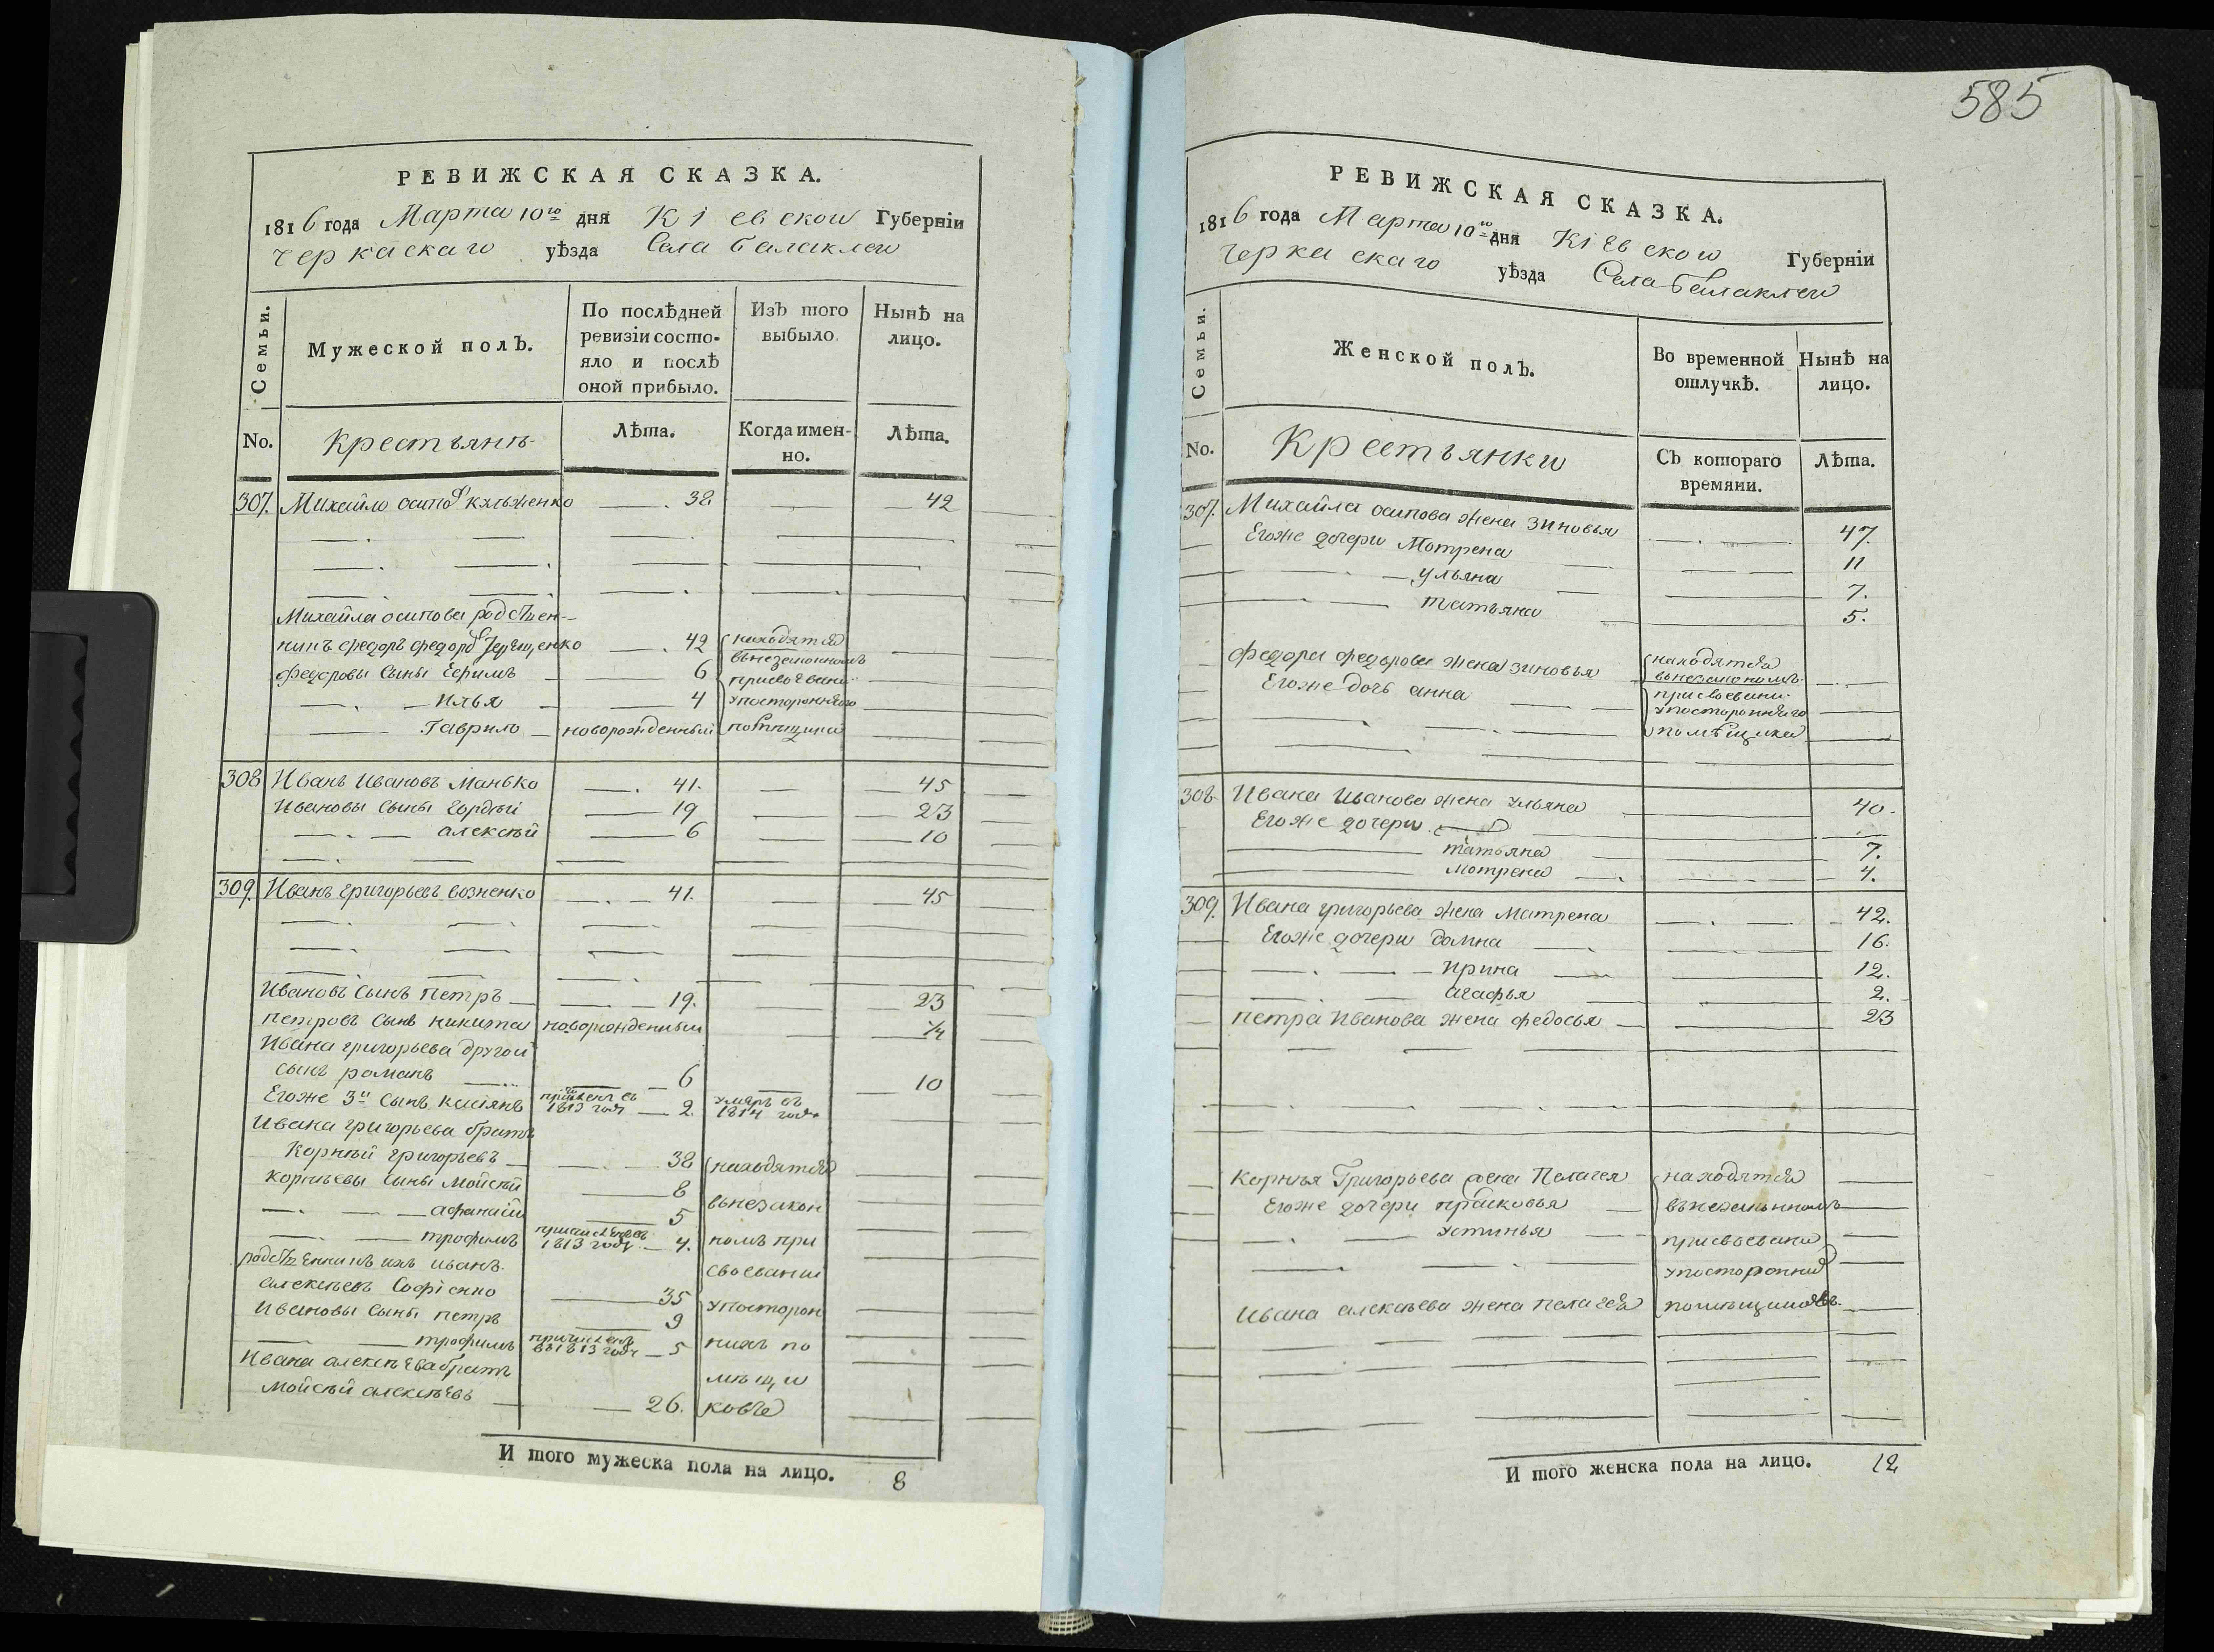 585
РЕВИЖСКАЯ СКАЗКА.
1816 года Марта 10го дня Кіевской Губерніи
Черкаскаго уѣзда Села Балаклеи
Семьи.
Мужеской полъ.
По послѣдней ревизіи состо-
яло и послѣ
оной прибыло.
Изъ того
выбыло.
Нынѣ на
лицо.
No.
Крестьянъ
Лѣта.
Когда имен-
но.
Лѣта.
307. Михайло осипов 38 42
Михайла осипова родствен-
никъ федоръ федоров 42 находятся
федоровы сыны Ефимъ 6 присвоении
Илья 4 у посторонняго
Гаврило новорожденный помѣщика
308 Иванъ Ивановъ Манько 41. 45
Ивановы сыны Гордѣй 19 23
алексѣй 6 10
309. Иванъ григорьевъ возненко 41. 45
Ивановъ сынъ петръ 19. 23
петровъ сынъ никита новорожденный 1/4
Ивана григорьева другой
сынъ романъ 6 10
Егоже 3й сынъ касіянъ 1813 году 2. умеръ въ 1814 году
Ивана григорьева братъ
Корнѣй григорьевъ 38 находятся
корнѣевы сыны Мойсѣй 8
афанасій 5 въ незакон
трофимъ 1813 году 4. номъ при
родственникъ ихъ иванъ
алексѣевъ Софіенко 35 своении
Ивановы сыны петръ 9 у посторон
трофимъ въ 1813 году 5 нихъ по
Ивана алексѣева братъ мѣщи
Мойсѣй алексѣевъ 26. ковъ
И того мужеска пола на лицо. 8
РЕВИЖСКАЯ СКАЗКА.
1816 года Марта 10го дня Кіевской Губерніи
Черкаскаго уѣзда Села Балаклеи
Семьи.
Женской полъ.
Во временной
отлучкѣ.
Нынѣ на
лицо.
No.
Крестьянки
Съ котораго
времяни.
Лѣта.
307. Михайла осипова жена зиновья 47.
Егоже дочери Мотрена 11
ульяна 7.
татьяна 5.
федора федорова жена зиновья находятся
Егоже дочь анна
у посторонняго
помѣщика
308. Ивана Иванова жена ульяна 40.
Егоже дочери
татьяна 7.
мотрена 4.
309. Ивана григорьева жена матрена 42.
Егоже дочери домна 16.
Ирина 12.
агафья 2.
петра Иванова жена федосья 23
Корнѣя Григорьева жена Пелагея находятся
Егоже дочери прасковья
устинья
Ивана алексѣева жена пелагея помѣщиковъ.
И того женска пола на лицо. 12